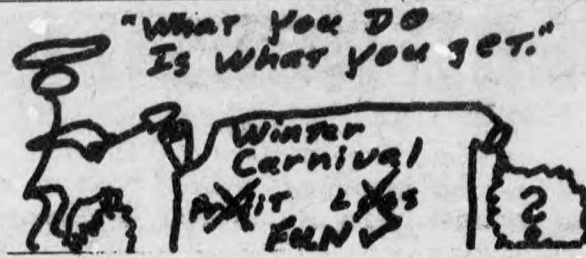 "What You DO
Is what you get."
Winter
Carnival
FUN ✓
?